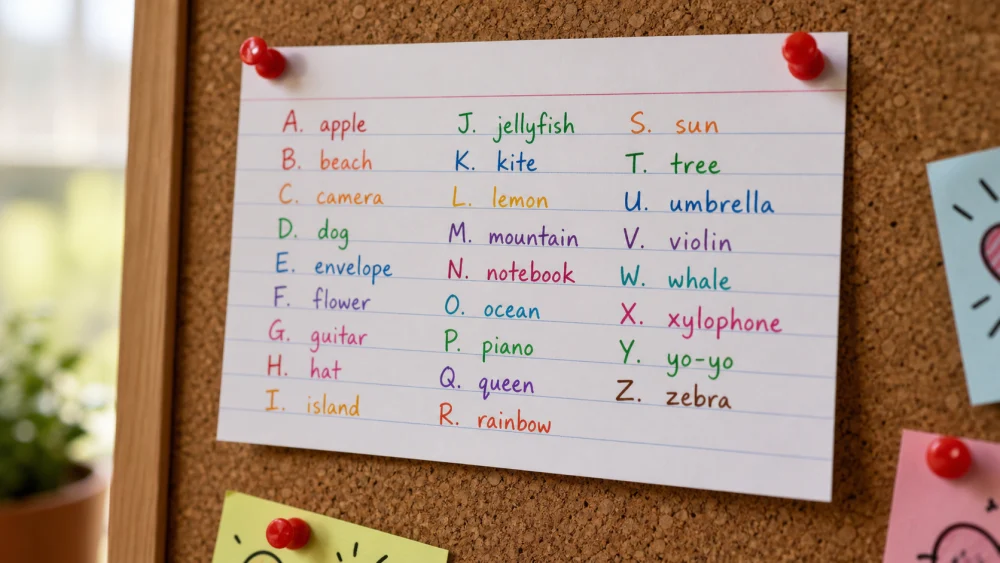 A. apple
B. beach
C. camera
D. dog
E. envelope
F. flower
G. guitar
H. hat
I. island
J. jellyfish
K. kite
L. lemon
M. mountain
N. notebook
O. ocean
P. piano
Q. queen
R. rainbow
S. sun
T. tree
U. umbrella
V. violin
W. whale
X. xylophone
Y. yo-yo
Z. zebra